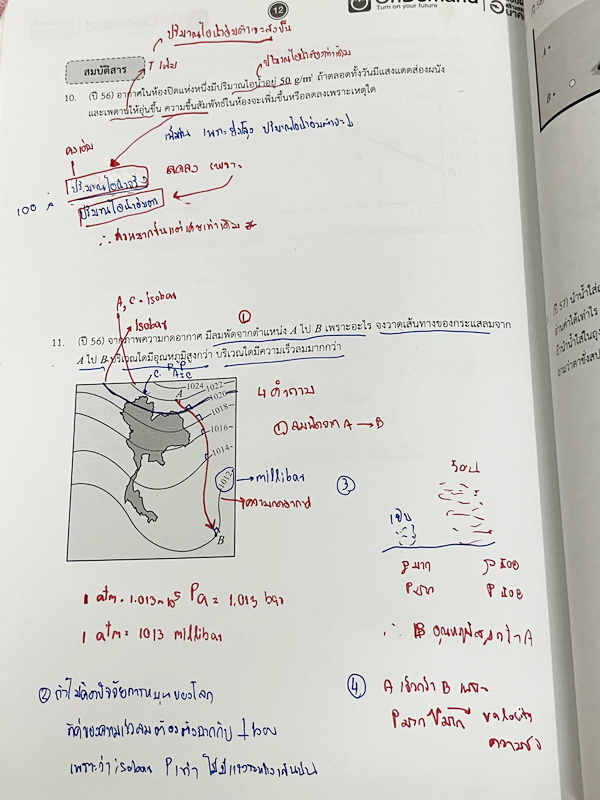 12
OnDemand
Turn on your future
ปริมาณไอน้ำอิ่มตัวจะสูงขึ้น
สมบัติสาร
T เพิ่ม
ปริมาณไอน้ำคงเท่าเดิม
10. (ปี 56) อากาศในห้องปิดแห่งหนึ่งมีปริมาณไอน้ำอยู่ 50 g/m³ ถ้าตลอดทั้งวันมีแสงแดดส่องผนัง
และเพดานให้อุ่นขึ้น ความชื้นสัมพัทธ์ในห้องจะเพิ่มขึ้นหรือลดลงเพราะเหตุใด
คงเดิม
ปริมาณไอน้ำจริง
ลดลง เพราะ
100 ×
ปริมาณไอน้ำอิ่มตัว
A, C = isobar
isobar
①
11. (ปี 56) จากภาพความกดอากาศ มีลมพัดจากตำแหน่ง A ไป B เพราะอะไร จงวาดเส้นทางของกระแสลมจาก
A ไป B บริเวณใดมีอุณหภูมิสูงกว่า บริเวณใดมีความเร็วลมมากกว่า
C
A
1024
1022
1020
1018
1016
1014
1012
B
4 คำถาม
① ลมพัดจาก A → B
millibar
ความกดอากาศ
③
ร้อน
เย็น
ρ มาก
ρ น้อย
P มาก
P น้อย
∴ B อุณหภูมิสูงกว่า A
1 atm = 1.013×10⁵ Pa = 1.013 bar
1 atm = 1013 millibar
② ถ้าไม่คิดปัจจัยการหมุนของโลก
ทิศของความเร็วลมต้องตั้งฉากกับ
เพราะว่า isobar P เท่า
④ A เร็วกว่า B เพราะ
P มาก velocity